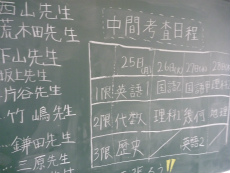 西山先生
荒木田先生
下山先生
坂上先生
片谷先生
竹嶋先生
鎌田先生
三原先生
中間考査日程
25日(月) 26日(火) 27日(水)
1限 英語1 国語2 国語1
2限 代数 理科1 幾何 地理
3限 歴史 英語2
!!